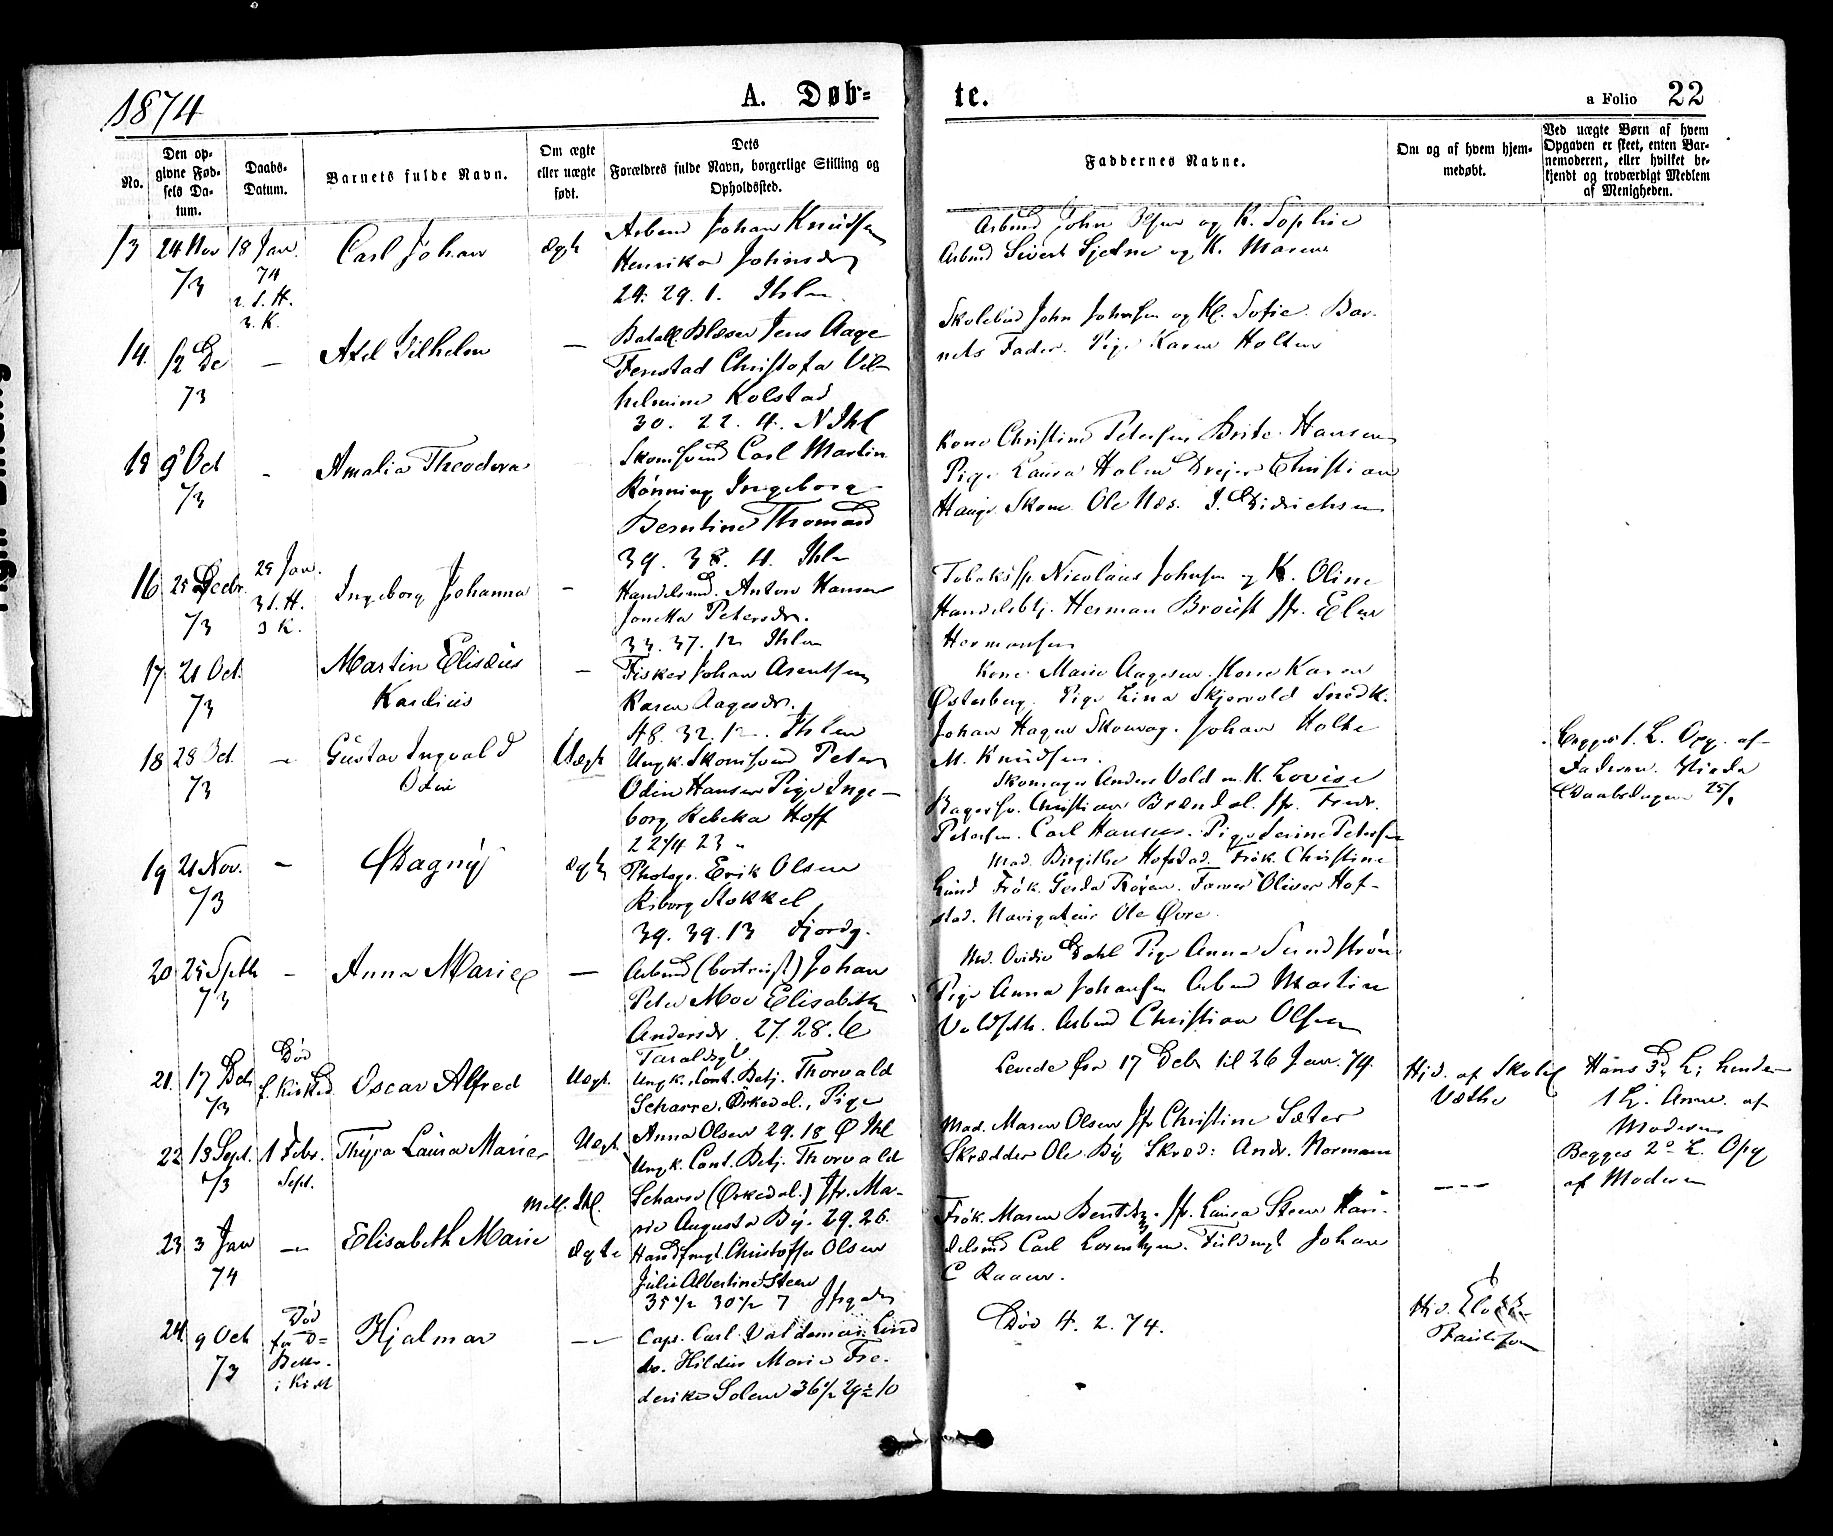 1874
A. Døb-
te.
a Folio 22
No.
Den op-
givne Fød-
sels Da-
tum.
Daabs-
Datum.
Barnets fulde Navn.
Om ægte
eller uægte
født.
Dets
Forældres fulde Navn, borgerlige Stilling og
Opholdssted.
Faddernes Navne.
Om og af hvem hjem-
medøbt.
Ved uægte Børn af hvem
Opgaven er skeet, enten Bar-
nemoderen, eller hvilket be-
kjendt og troværdigt Medlem
af Menigheden.
13 24 Nov 73
18 Jan. 74
Carl Johan
Ægte
Arbmd Johan Knudsen
Henrika Johnsdr
24. 29. 1. Ihlen
Arbmd John Olsen og K. Sophie
Arbmd Sivert Sjetne og K. Maren
14. 12 De 73
—
Axel Vilhelm
—
Batall. Blæser Jens Aage
Fenstad Christofa Vil-
helmine Kolstad
30. 22. 4. N Ihl
John Johnsen og K. Sofie. Bar-
nets Fader. Pige Karen Holten
9 Oct 73
-
Amalia Theodora
Skomsvend Carl Martin
Rønning Ingeborg
Berntine Thomasd
39. 38. 4. Ihlen
Kone Christine Petersen Brite Hansen
Pige Laura Holm Drejer Christian
Hauge. Skom. Ole Næs. I. Didrichsen
16 25 Decbr. 73
25 Jan.
Ingeborg Johanna
—
Handelsmd. Anton Hansen
Jonetta Petersdr.
33. 37. 12 Ihlen
Tobakssp. Nicolaus Johnsen og K. Oline
Handelsbtj. Herman Broust Jfr. Elen
Hermansen
17 21 Oct. 73
Martin Elisæus
Kasdius
—
Fisker Johan Arentsen
Karen Aagesdr.
48. 32. 12. Ihlen
Kone Marie Aagesen Kone Karen
Østerberg. Pige Lina Skjervold Snedk.
Johan Hagen Skomag. Johan Holte
M. Knudsen.
18 29 Oct. 73
—
Gustav Ingvald
Odin
Uægte
Ungk. Skomsvend Peter
Odin Hansen Pige Inge-
borg Rebekka Hoff
22 1/4 23 "
Skomager Anders Vold og K. Lovise
Bagersv. Christian Brændal. Jfr. Fredr.
Petersen. Carl Hansen. Pige Serine Petersen
Begges 1. L. Opg. af
Faderen.
Daabsdagen 25/1
19 21 Nov. 73
—
Dagny
Ægte
Photogr. Erik Olsen
Riborg Stokkel
39. 39. 13 Fjordg.
Mad. Birgithe Hofstad. Frøk. Christine
Lund Frøk. Gerda Frøken. Oliver Hof-
stad. Navigateur Ole Øvre.
20 25 Septb 73
—
Anna Marie
—
Arbmd (bortreist) Johan
Peter Moe Elisabeth
Andersdr. 27. 28. 6
Mad. Ovidia Dahl Pige Anna Sundstrøm
Pige Anna Johansen Arbmd Martin
Voldseth. Arbmd Christian Olsen
21. 17 Deb 73
Død
Oscar Alfred
Uægt.
Ungk. Cont. Betj. Thorvald
Scharre. Ørkedal., Pige
Anna Olsen 29. 18 Ø Ihl
Levede fra 17 Deb til 26 Jan. 74.
Hans 3die L; hendes
1 L. Anm. af
Moderen
22 13 Sept. 73
1 Febr.
Sept.
Thyra Laura Marie
Uægt
Mell. Ihl.
Ungk. Cont. Betj. Thorvald
Scharre (Ørkedal.) Jfr. Ma-
rie Augusta By. 29. 26.
Mad. Maren Olsen Jfr Christine Sæter
Skrædder Ole By Skræd: Andr. Normann
---
Begges 2de L. Opg
af Moderen
23 3 Jan 74
—
Elisabeth Marie
Ægte
Handsfmgt. Christoffer Olsen
Julie Albertine Steen
35 1/2 30 1/2 7
Frøk. Maren Bentzen. Jfr. Laura Steen Han-
delsmd Carl Lorentzen. Fuldmgt Johan
C Raaen.
24. 9 Oct 73
Død
Hjalmar
—
Capt. Carl Valdemar Lind
Hilda Marie Fre-
derikke Solem 36 1/2 29 1/2 10
Død 4. 2. 74.